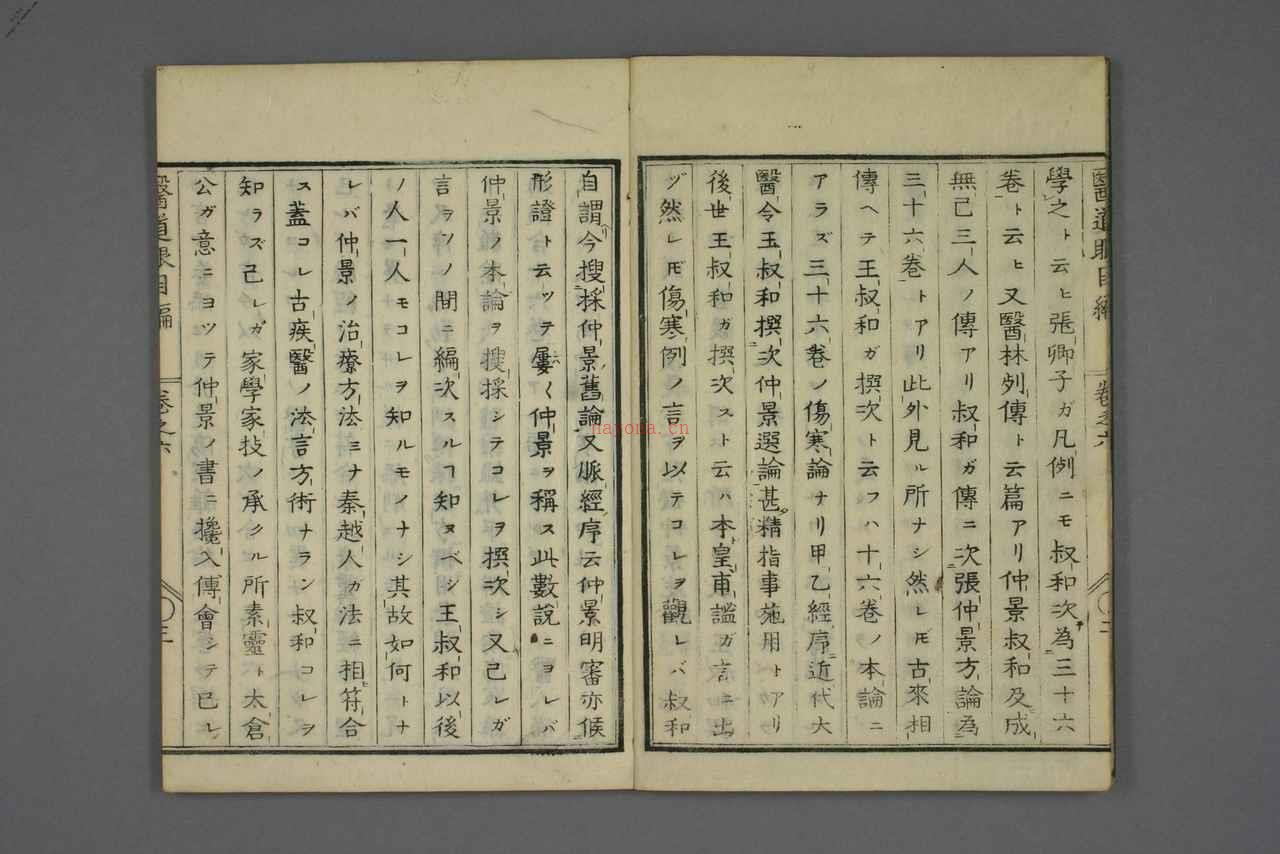 醫道眼目編 卷之六 二
學之ト云ヒ張卿子ガ凡例ニモ叔和次為三十六
卷ト云ヒ又醫林列傳ト云篇アリ仲景叔和及成
無己三人ノ傳アリ叔和ガ傳ニ次張仲景方論為
三十六卷トアリ此外見ル所ナシ然レ𪜈古來相
傳ヘテ王叔和ガ撰次ト云フハ十六卷ノ本論ニ
アラズ三十六卷ノ傷寒論ナリ甲乙經序近代大
醫令王叔和撰次仲景選論甚精指事施用トアリ
後世王叔和ガ撰次スト云ハ本皇甫謐ガ言ニ出
ヅ然レ𪜈傷寒例ノ言ヲ以テコレヲ觀レバ叔和
自謂今搜採仲景舊論又脈經序云仲景明審亦候
形證ト云ツテ屢〱仲景ヲ稱ス此數說ニヨレバ
仲景ノ本論ヲ搜採シテコレヲ撰次シ又己レガ
言ヲソノ間ニ編次スルヿ知ヌベシ王叔和以後
ノ人一人モコレヲ知ルモノナシ其故如何トナ
レバ仲景ノ治療方法ミナ秦越人ガ法ニ相符合
ス蓋コレ古疾醫ノ法言方術ナラン叔和コレヲ
知ラズ己レガ家學家技ノ承クル所素靈ト太倉
公ガ意ニヨツテ仲景ノ書ニ攙入傅會シテ已レ
醫道眼目編 卷之六 三
hayona.cn